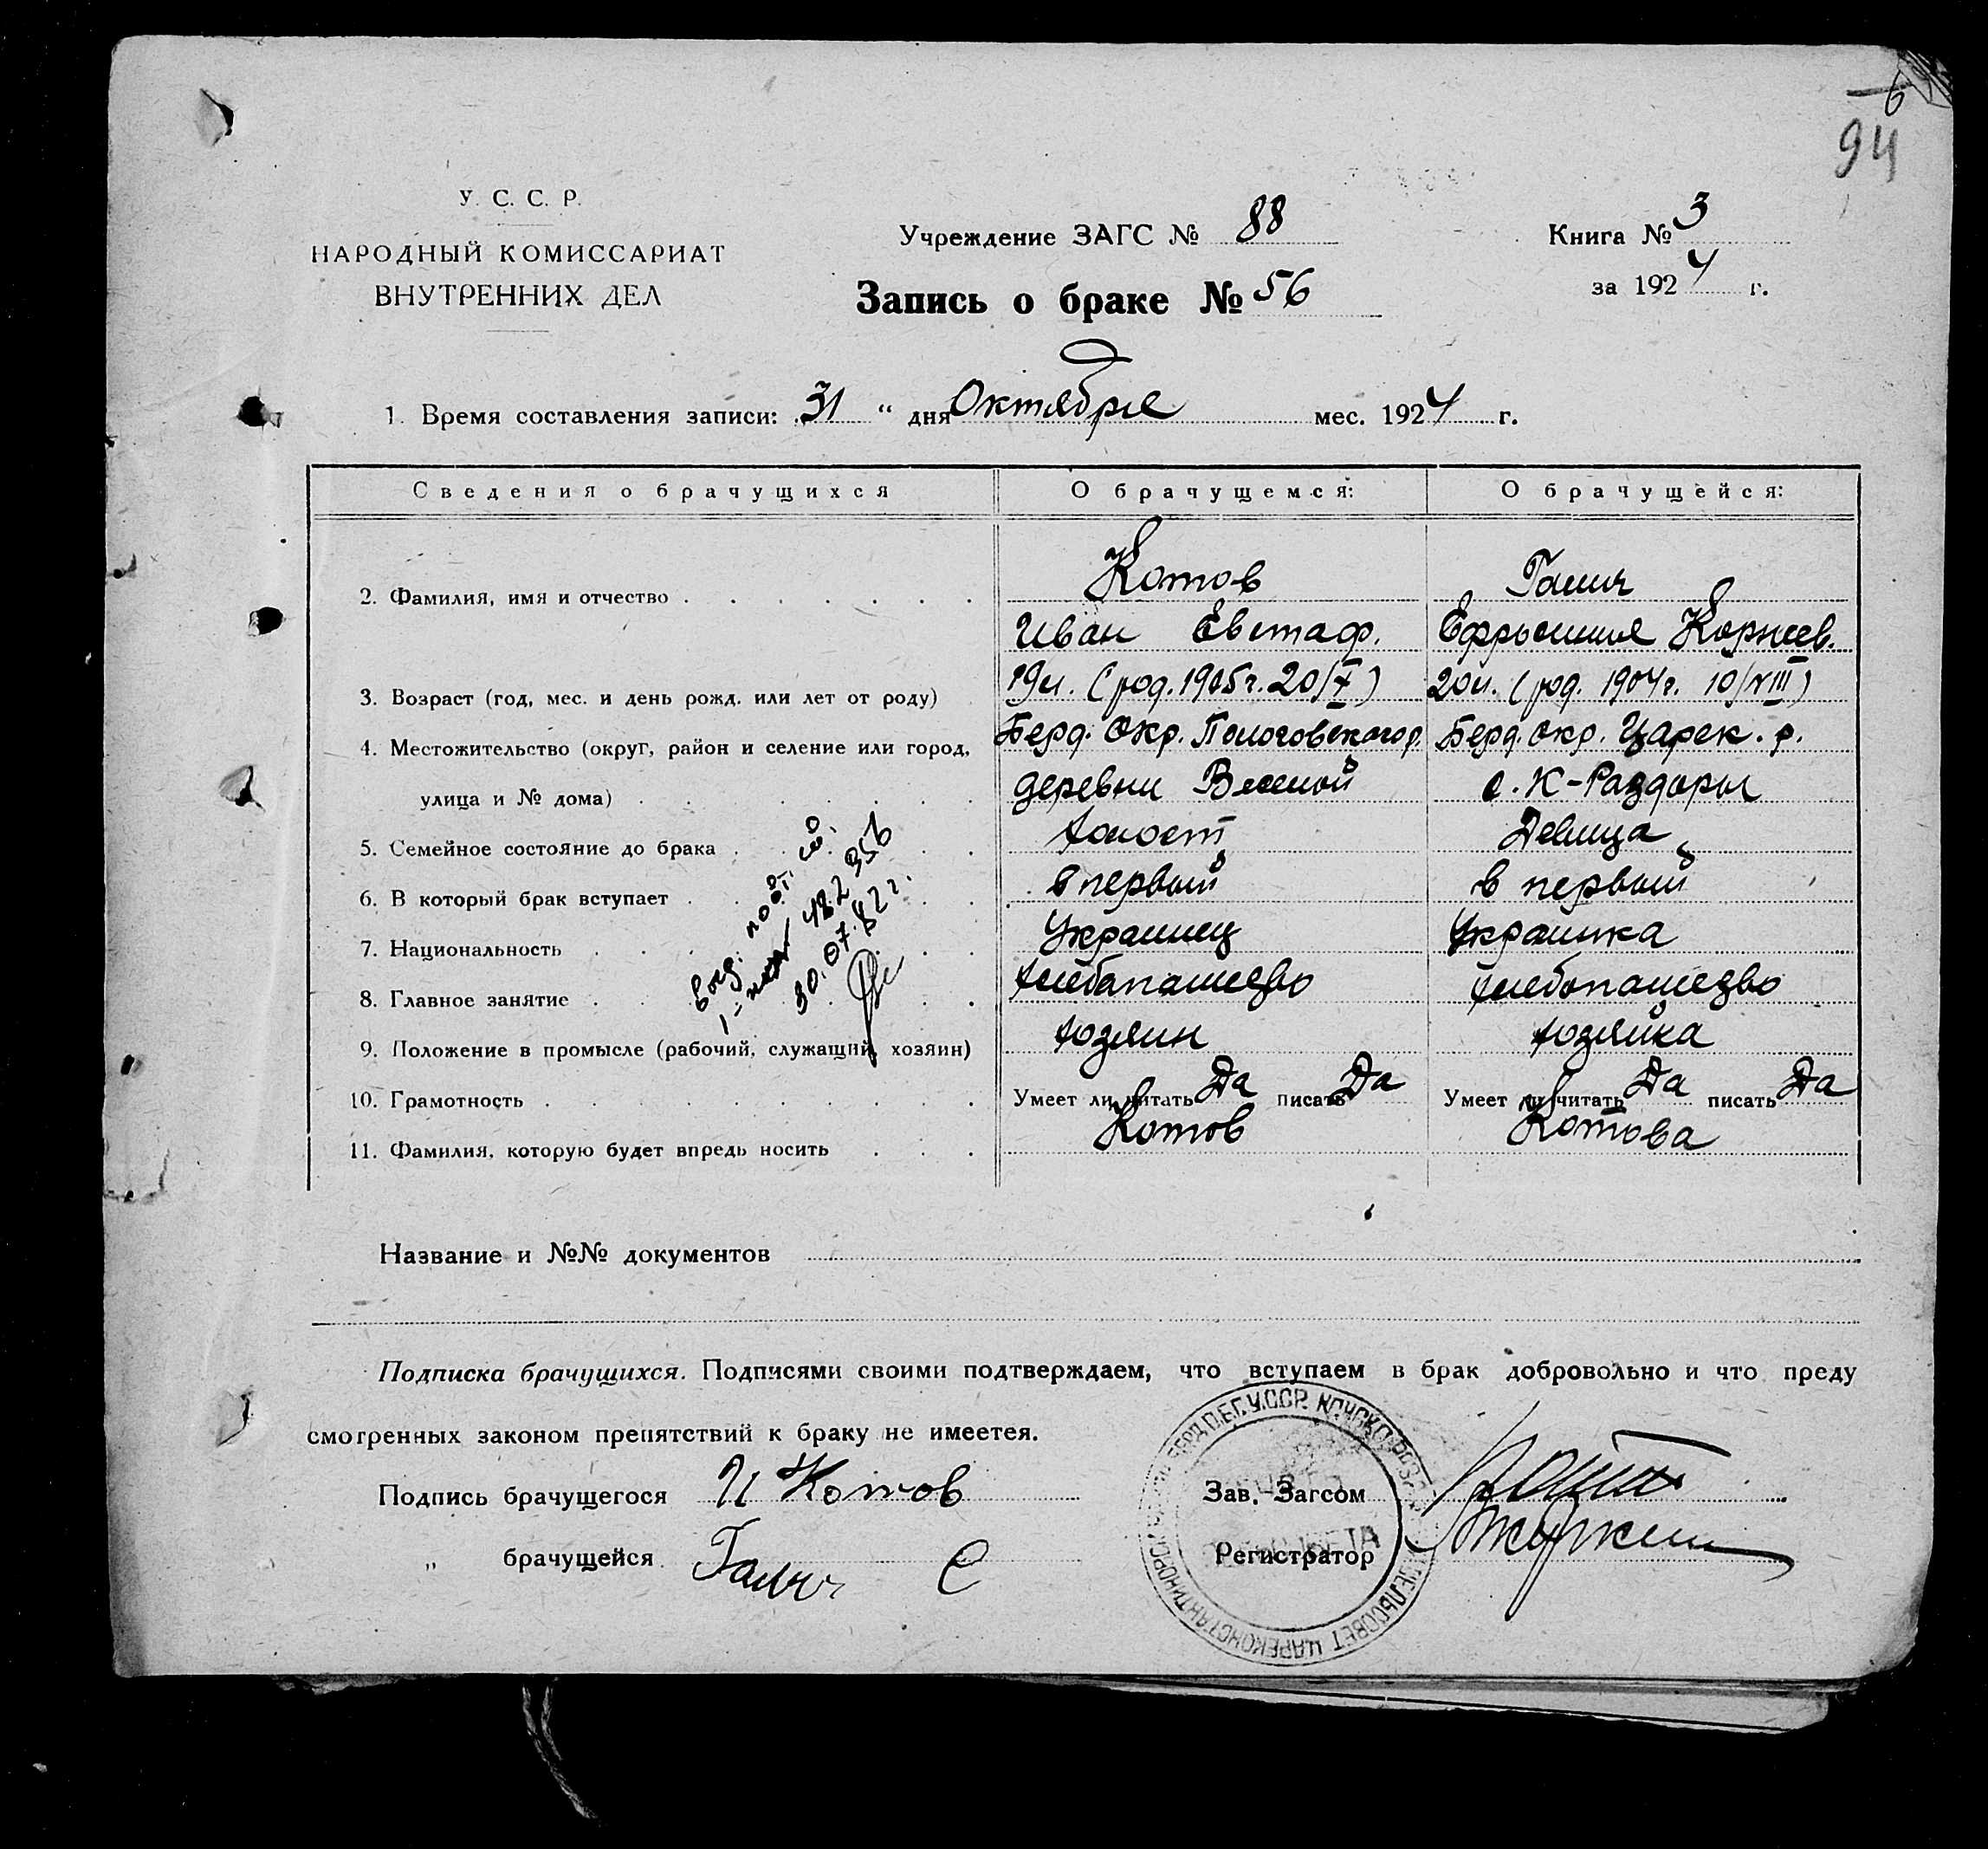 6
94
У. С. С. Р.
НАРОДНЫЙ КОМИССАРИАТ
ВНУТРЕННИХ ДЕЛ
Учреждение ЗАГС № 88
Запись о браке № 56
Книга № 3
за 1924 г.
1. Время составления записи: 31 " дня Октября мес. 1924 г.
Сведения о брачущихся О брачущемся: О брачущейся:
2. Фамилия, имя и отчество Котов Галич
Иван Евстаф. Ефросиния Корнеев.
3. Возраст (год, мес. и день рожд. или лет от роду) 19 л. (род. 1905 г. 20/X) 20 л. (род. 1904 г. 10/VIII)
4. Местожительство (округ, район и селение или город, Берд. Окр. Пологовского р. Берд. окр. Царек. р.
улица и № дома) деревни Веселой с. К-Раздоры
5. Семейное состояние до брака холост Девица
6. В который брак вступает в первый в первый
7. Национальность Украинец Украинка
8. Главное занятие хлебопашество хлебопашество
9. Положение в промысле (рабочий, служащий, хозяин) хозяин хозяйка
10. Грамотность Умеет ли читать Да писать Да Умеет ли читать Да писать Да
11. Фамилия, которую будет впредь носить Котов Котова
482356
30.07.82 г.
Название и №№ документов
Подписка брачущихся. Подписями своими подтверждаем, что вступаем в брак добровольно и что преду
смотренных законом препятствий к браку не имеется.
Подпись брачущегося И Котов
Зав. Загсом
" брачущейся Галич Е
Регистратор
СЕЛЬСОВЕТ ЦАРЕКОНСТАНТИНОВСК